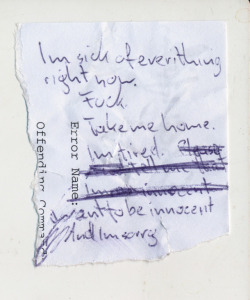 Im sick of everithing
right now.
Fuck.
Take me home.
Im tired.
Im innocent
want to be innocent
And Im sorry
Error Name:
Offending Comma